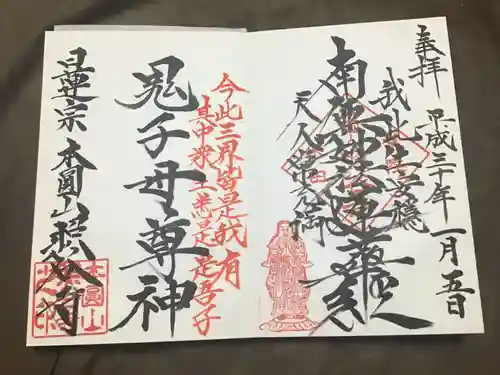 奉拝
平成三十年一月五日
我此土安穏
南無妙法蓮華経
天人常充満
今此三界皆是我有
其中衆生悉是吾子
鬼子母尊神
日蓮宗 本圓山
本圓山